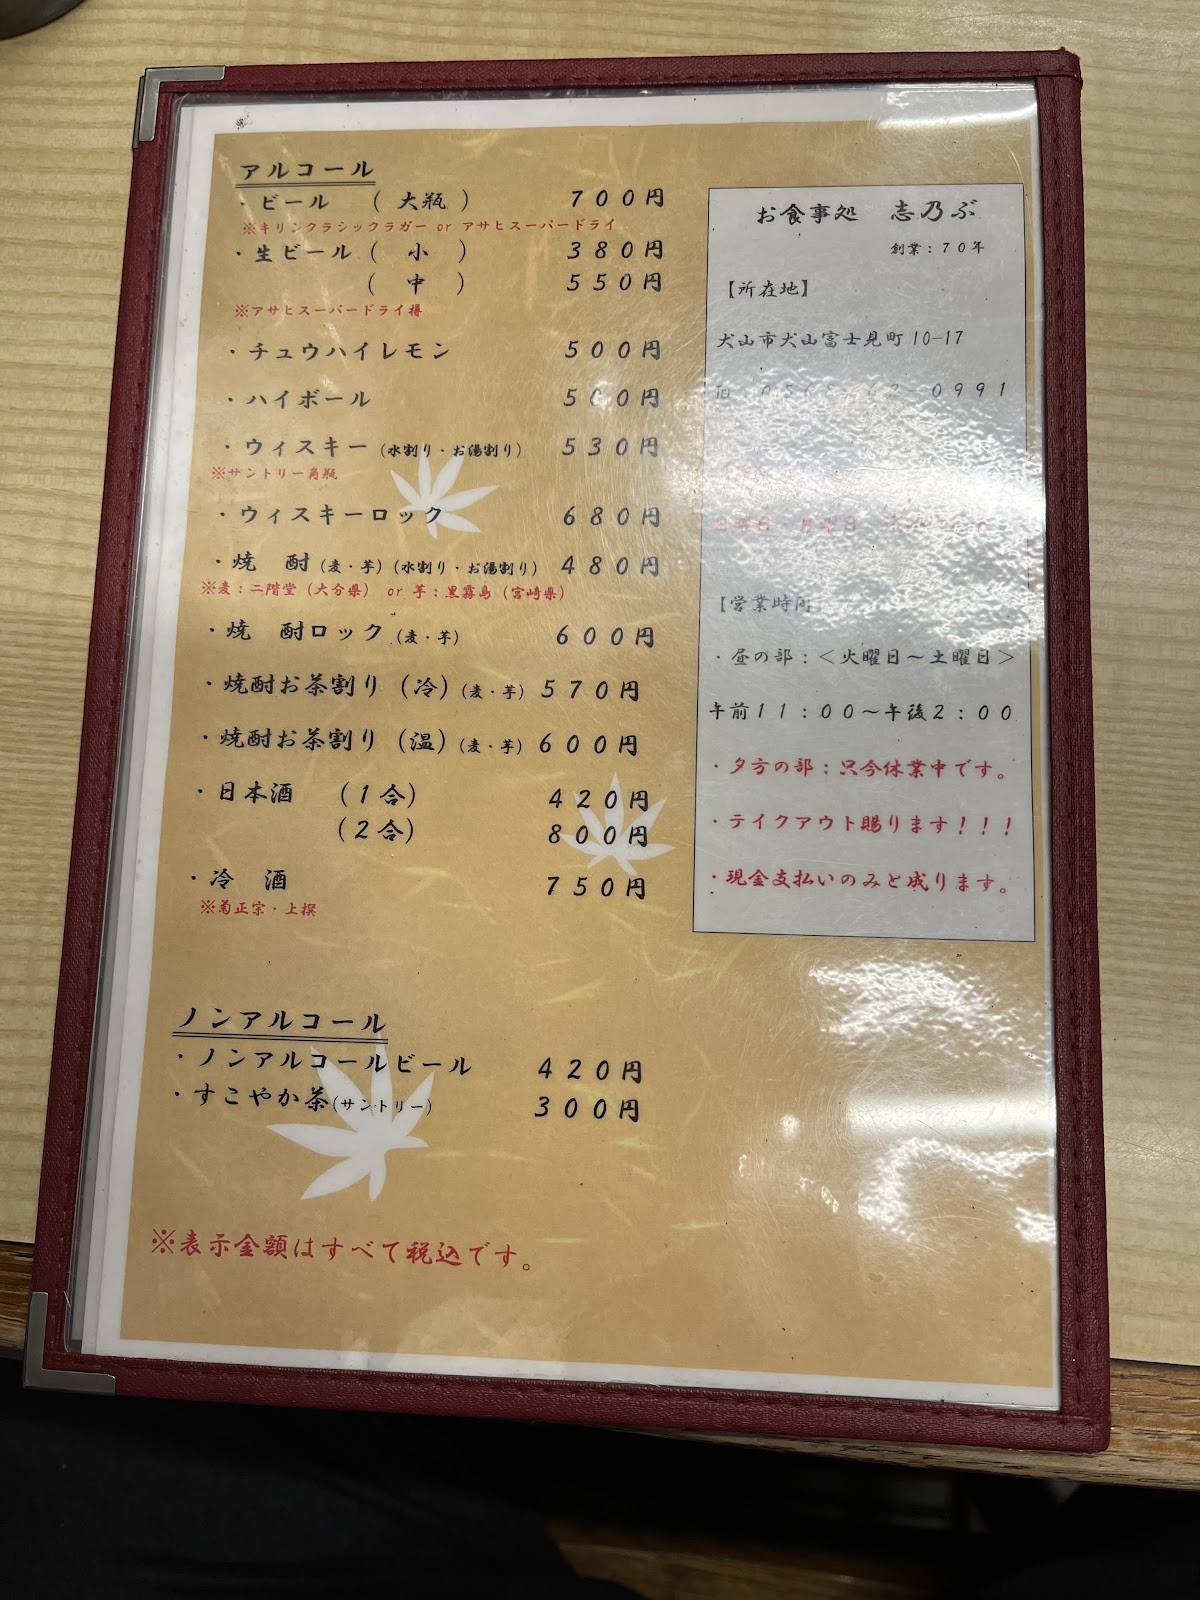 アルコール
・ビール （ 大瓶 ） 700円
※キリンクラシックラガー or アサヒスーパードライ
・生ビール（ 小 ） 380円
（ 中 ） 550円
※アサヒスーパードライ樽
・チュウハイレモン 500円
・ハイボール 500円
・ウィスキー（水割り・お湯割り） 530円
※サントリー角瓶
・ウィスキーロック 680円
・焼 酎（麦・芋）（水割り・お湯割り） 480円
※麦：二階堂（大分県） or 芋：黒霧島（宮崎県）
・焼 酎ロック（麦・芋） 600円
・焼酎お茶割り（冷）（麦・芋） 570円
・焼酎お茶割り（温）（麦・芋） 600円
・日本酒 （1合） 420円
（2合） 800円
・冷 酒 750円
※菊正宗・上撰
ノンアルコール
・ノンアルコールビール 420円
・すこやか茶（サントリー） 300円
※表示金額はすべて税込です。
お食事処 志乃ぶ
創業：70年
【所在地】
犬山市犬山富士見町10-17
0991
月曜日
【営業時間
・昼の部：＜火曜日～土曜日＞
午前11：00～午後2：00
・夕方の部：只今休業中です。
・テイクアウト賜ります！！！
・現金支払いのみと成ります。